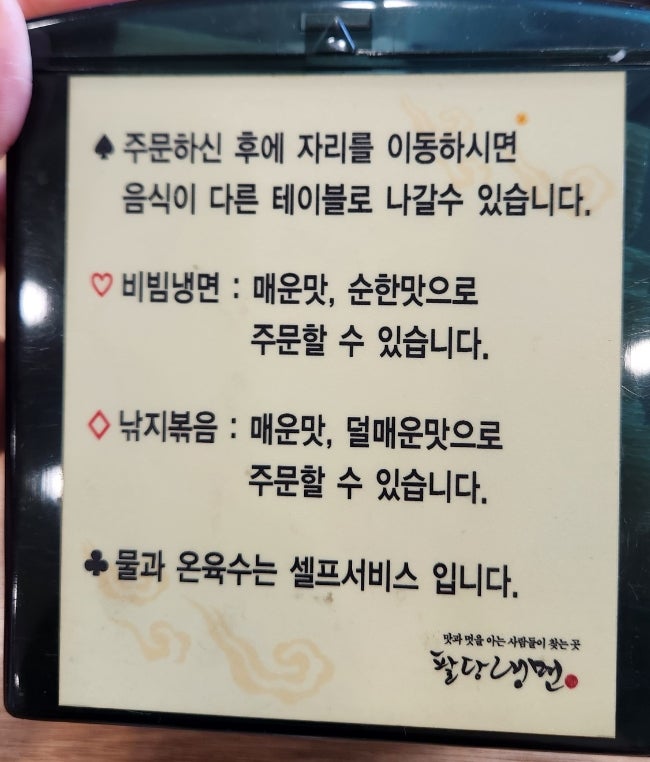 ♠ 주문하신 후에 자리를 이동하시면
음식이 다른 테이블로 나갈수 있습니다.
♡ 비빔냉면 : 매운맛, 순한맛으로
주문할 수 있습니다.
◇ 낚지볶음 : 매운맛, 덜매운맛으로
주문할 수 있습니다.
♣ 물과 온육수는 셀프서비스 입니다.
맛과 멋을 아는 사람들이 찾는 곳
팔당냉면